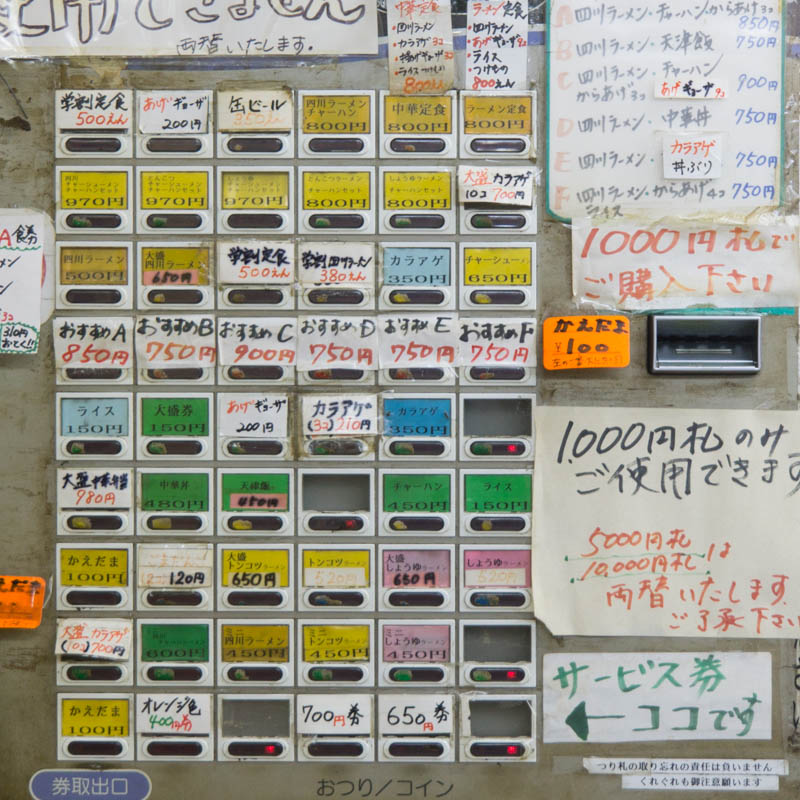 できません
両替いたします.
中華定食
・四川ラーメン
・カラアゲ3コ
・揚げギョーザ3コ
・ライスつけもの
800えん
ラーメン定食
・四川ラーメン
・あげギョーザ3コ
・ライス
・つけもの
800えん
A 四川ラーメン・チャーハンからあげ3コ
850円
B 四川ラーメン・天津飯 750円
C 四川ラーメン・チャーハン
からあげ3コ あげギョーザ2コ 900円
D 四川ラーメン・中華丼 750円
E 四川ラーメン・カラアゲ丼ぶり 750円
F 四川ラーメン・からあげ4コ 750円
ライス
学割定食 500えん
あげギョーザ 200円
缶ビール 350えん
四川ラーメン チャーハン 800円
中華定食 800円
ラーメン定食 800円
四川 チャーシューメン チャーハンセット 970円
とんこつ チャーシューメン チャーハンセット 970円
しょうゆ チャーシューメン チャーハンセット 970円
とんこつラーメン チャーハンセット 800円
しょうゆラーメン チャーハンセット 800円
大盛カラアゲ 10コ 700円
四川ラーメン 500円
大盛 四川ラーメン 650円
学割定食 500えん
学割四川ラーメン 380えん
カラアゲ 350円
チャーシューメン 650円
おすすめA 850円
おすすめB 750円
おすすめC 900円
おすすめD 750円
おすすめE 750円
おすすめF 750円
ライス 150円
大盛券 150円
あげギョーザ 200円
カラアゲ (3コ)210円
カラアゲ 350円
大盛中華丼 980円
中華丼 480円
天津飯 450円
チャーハン 450円
ライス 150円
かえだま 100円
120円
大盛 トンコツラーメン 650円
トンコツラーメン 520円
大盛 しょうゆラーメン 650円
しょうゆラーメン 520円
大盛カラアゲ (10コ)700円
チャーハンセット 600円
ミニ 四川ラーメン 450円
ミニ トンコツラーメン 450円
ミニ しょうゆラーメン 450円
かえだま 100円
オレンジ色 400円券
700円券
650円券
1000円札で
ご購入下さい
かえだま
¥100
1000円札のみ
ご使用できます
5000円札
10,000円札 は
両替いたします.
ご了承下さい
サービス券
← ココです
つり札の取り忘れの責任は負いません
くれぐれも御注意願います
A 食券
かえだま
券取出口
おつり/コイン